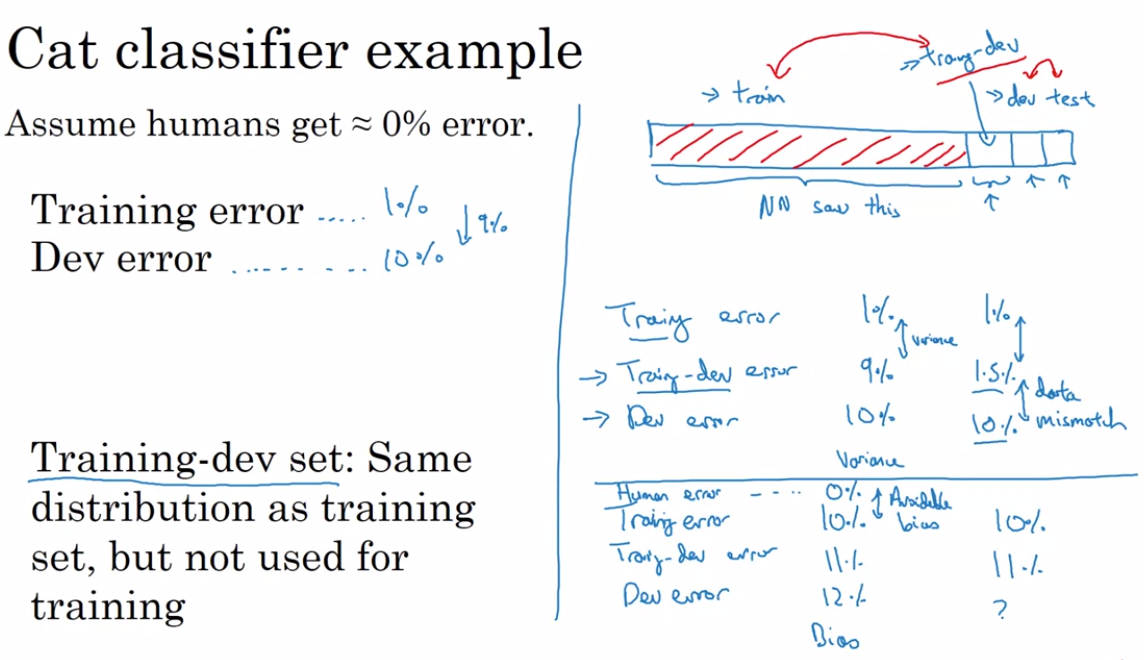 Cat classifier example
Assume humans get ≈ 0% error.
Training error ..... 1%
Dev error ........... 10%
↓ 9%
Training-dev set: Same
distribution as training
set, but not used for
training
→ train
→ traing-dev
→ dev test
NN saw this
Traing error 1% 1%
variance
→ Traing-dev error 9% 1.5%
→ Dev error 10% 10%
data
mismatch
Variance
Human error ---.. 0%
Traing error 10% 10%
Avoidable
bias
Traing-dev error 11% 11%
Dev error 12% ?
Bias